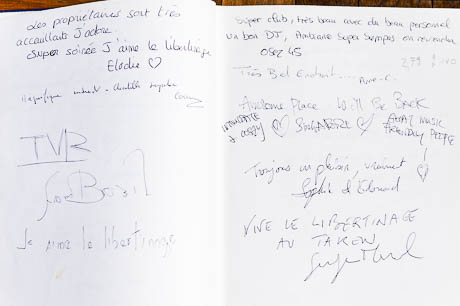 Les propriétaires sont très
accaillants J'adore.
Super soirée J'aime le libertinage
Elodie ♡
Magnifique
TVB
Je aime le libertinage
Super club, très beau avec du beau personnel
un bon DJ, Ambiance Super Sympas on reviendra
OSEZ 45
Très Bel Endroit....
Awesome Place Will Be Back
INTIMATE
& COSY ♡ ♡ GREAT MUSIC
FRIENDLY PEOPLE
!
Toujours un plaisir, vraiment ♡
Sophie et Edouard
VIVE LE LIBERTINAGE
AU TAKEN